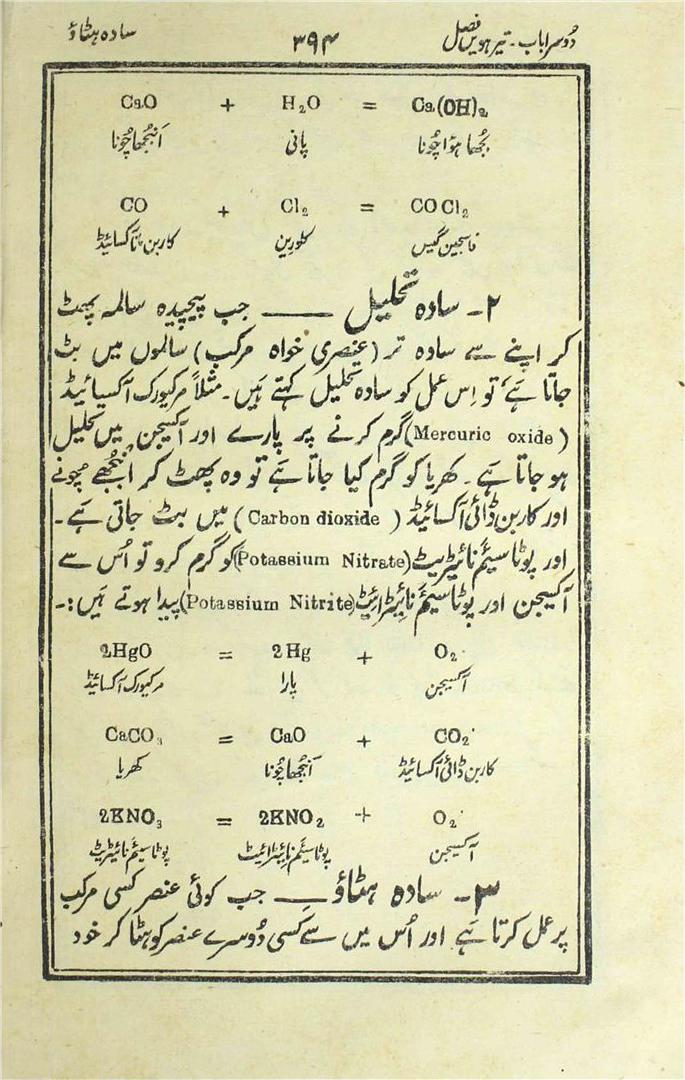 دُوسرا باب۔ تیرھویں فصل ۳۹۴ سادہ ہٹاؤ
CaO + H₂O = Ca(OH)₂
اَنبُجھا چُونا پانی بُجھا ہؤا چُونا
CO + Cl₂ = COCl₂
کاربن مآنآکسائیڈ کلورین فاسجین گیس
۲۔ سادہ تحلیل ــــــ جب پیچیدہ سالمہ پھٹ
کر اپنے سے سادہ تر (عنصری خواہ مرکب) سالموں میں بٹ
جاتا ہَے، تو اِس عمل کو سادہ تحلیل کہتے ہَیں۔ مثلاً مرکیورک آکسیائیڈ
(Mercuric oxide) گرم کرنے پر پارے اور آکسیجن میں تحلیل
ہو جاتا ہَے۔ کھریا کو گرم کیا جاتا ہَے تو وہ پھٹ کر اَنبُجھے چُونے
اور کاربن ڈائی آکسائیڈ (Carbon dioxide) میں بٹ جاتی ہَے۔
اور پوٹاسیئم نائیٹریٹ (Potassium Nitrate) کو گرم کرو تو اُس سے
آکسیجن اور پوٹاسیئم نائیٹرائیٹ (Potassium Nitrite) پیدا ہوتے ہَیں:۔
2HgO = 2Hg + O₂
مرکیورک آکسائیڈ پارا آکسیجن
CaCO₃ = CaO + CO₂
کھریا اَنبُجھا چُونا کاربن ڈائی آکسائیڈ
2KNO₃ = 2KNO₂ + O₂
پوٹاسیئم نائیٹریٹ پوٹاسیئم نائیٹرائیٹ آکسیجن
۳۔ سادہ ہٹاؤ ــــ جب کوئی عنصر کسی مرکب
پر عمل کرتا ہَے اور اُس میں سے کسی دُوسرے عنصر کو ہٹا کر خود